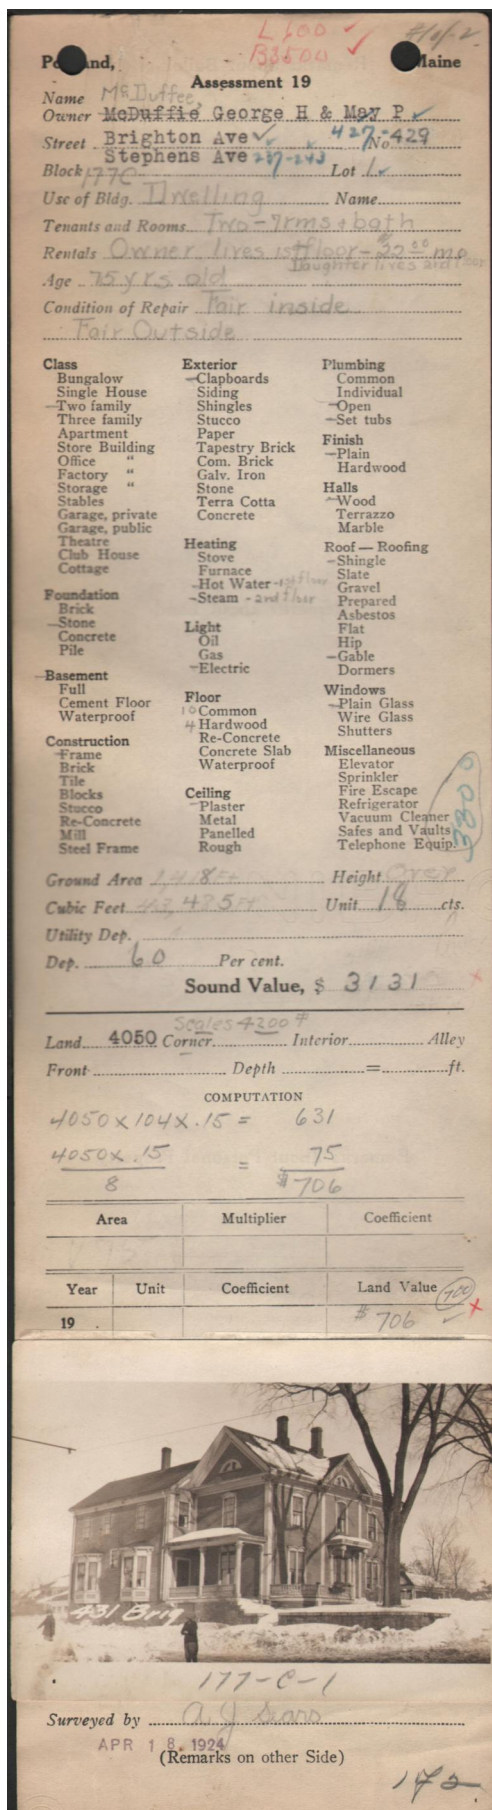 L 600 ✓
B 3500 ✓
Portland, Maine
Assessment 19
Name McDuffee,
Owner McDuffie George H & May P ✓
Street Brighton Ave ✓ 427- No 429
Stephens Ave 237-243
Block 177C Lot 1 ✓
Use of Bldg. Dwelling Name
Tenants and Rooms Two - 7rms + bath
Rentals Owner lives 1st floor - $22.00 mo
Daughter lives 2nd floor
Age 75 yrs old
Condition of Repair Fair inside
Fair Outside
Class
Bungalow
Single House
-Two family
Three family
Apartment
Store Building
Office "
Factory "
Storage "
Stables
Garage, private
Garage, public
Theatre
Club House
Cottage
Foundation
Brick
-Stone
Concrete
Pile
-Basement
Full
Cement Floor
Waterproof
Construction
-Frame
Brick
Tile
Blocks
Stucco
Re-Concrete
Mill
Steel Frame
Exterior
-Clapboards
Siding
Shingles
Stucco
Paper
Tapestry Brick
Com. Brick
Galv. Iron
Stone
Terra Cotta
Concrete
Heating
Stove
Furnace
-Hot Water - 1st floor
-Steam - 2nd floor
Light
Oil
Gas
-Electric
Floor
10 Common
4 Hardwood
Re-Concrete
Concrete Slab
Waterproof
Ceiling
-Plaster
Metal
Panelled
Rough
Plumbing
Common
Individual
-Open
-Set tubs
Finish
-Plain
Hardwood
Halls
-Wood
Terrazzo
Marble
Roof — Roofing
-Shingle
Slate
Gravel
Prepared
Asbestos
Flat
Hip
-Gable
Dormers
Windows
-Plain Glass
Wire Glass
Shutters
Miscellaneous
Elevator
Sprinkler
Fire Escape
Refrigerator
Vacuum Cleaner
Safes and Vaults
Telephone Equip.
3800
Ground Area Height Over
Cubic Feet Unit 18 cts.
Utility Dep.
Dep. 60 Per cent.
Sound Value, $ 3131
Scales 4200 #
Land 4050 Corner Interior Alley
Front Depth = ft.
COMPUTATION
4050 x 104 x .15 = 631
4050 x .15 = 75
8 $706
Area Multiplier Coefficient
Year Unit Coefficient Land Value 700
19 . $ 706 ✓
431 Brig
177-C-1
Surveyed by A J Sears
APR 18. 1924
(Remarks on other Side)
172